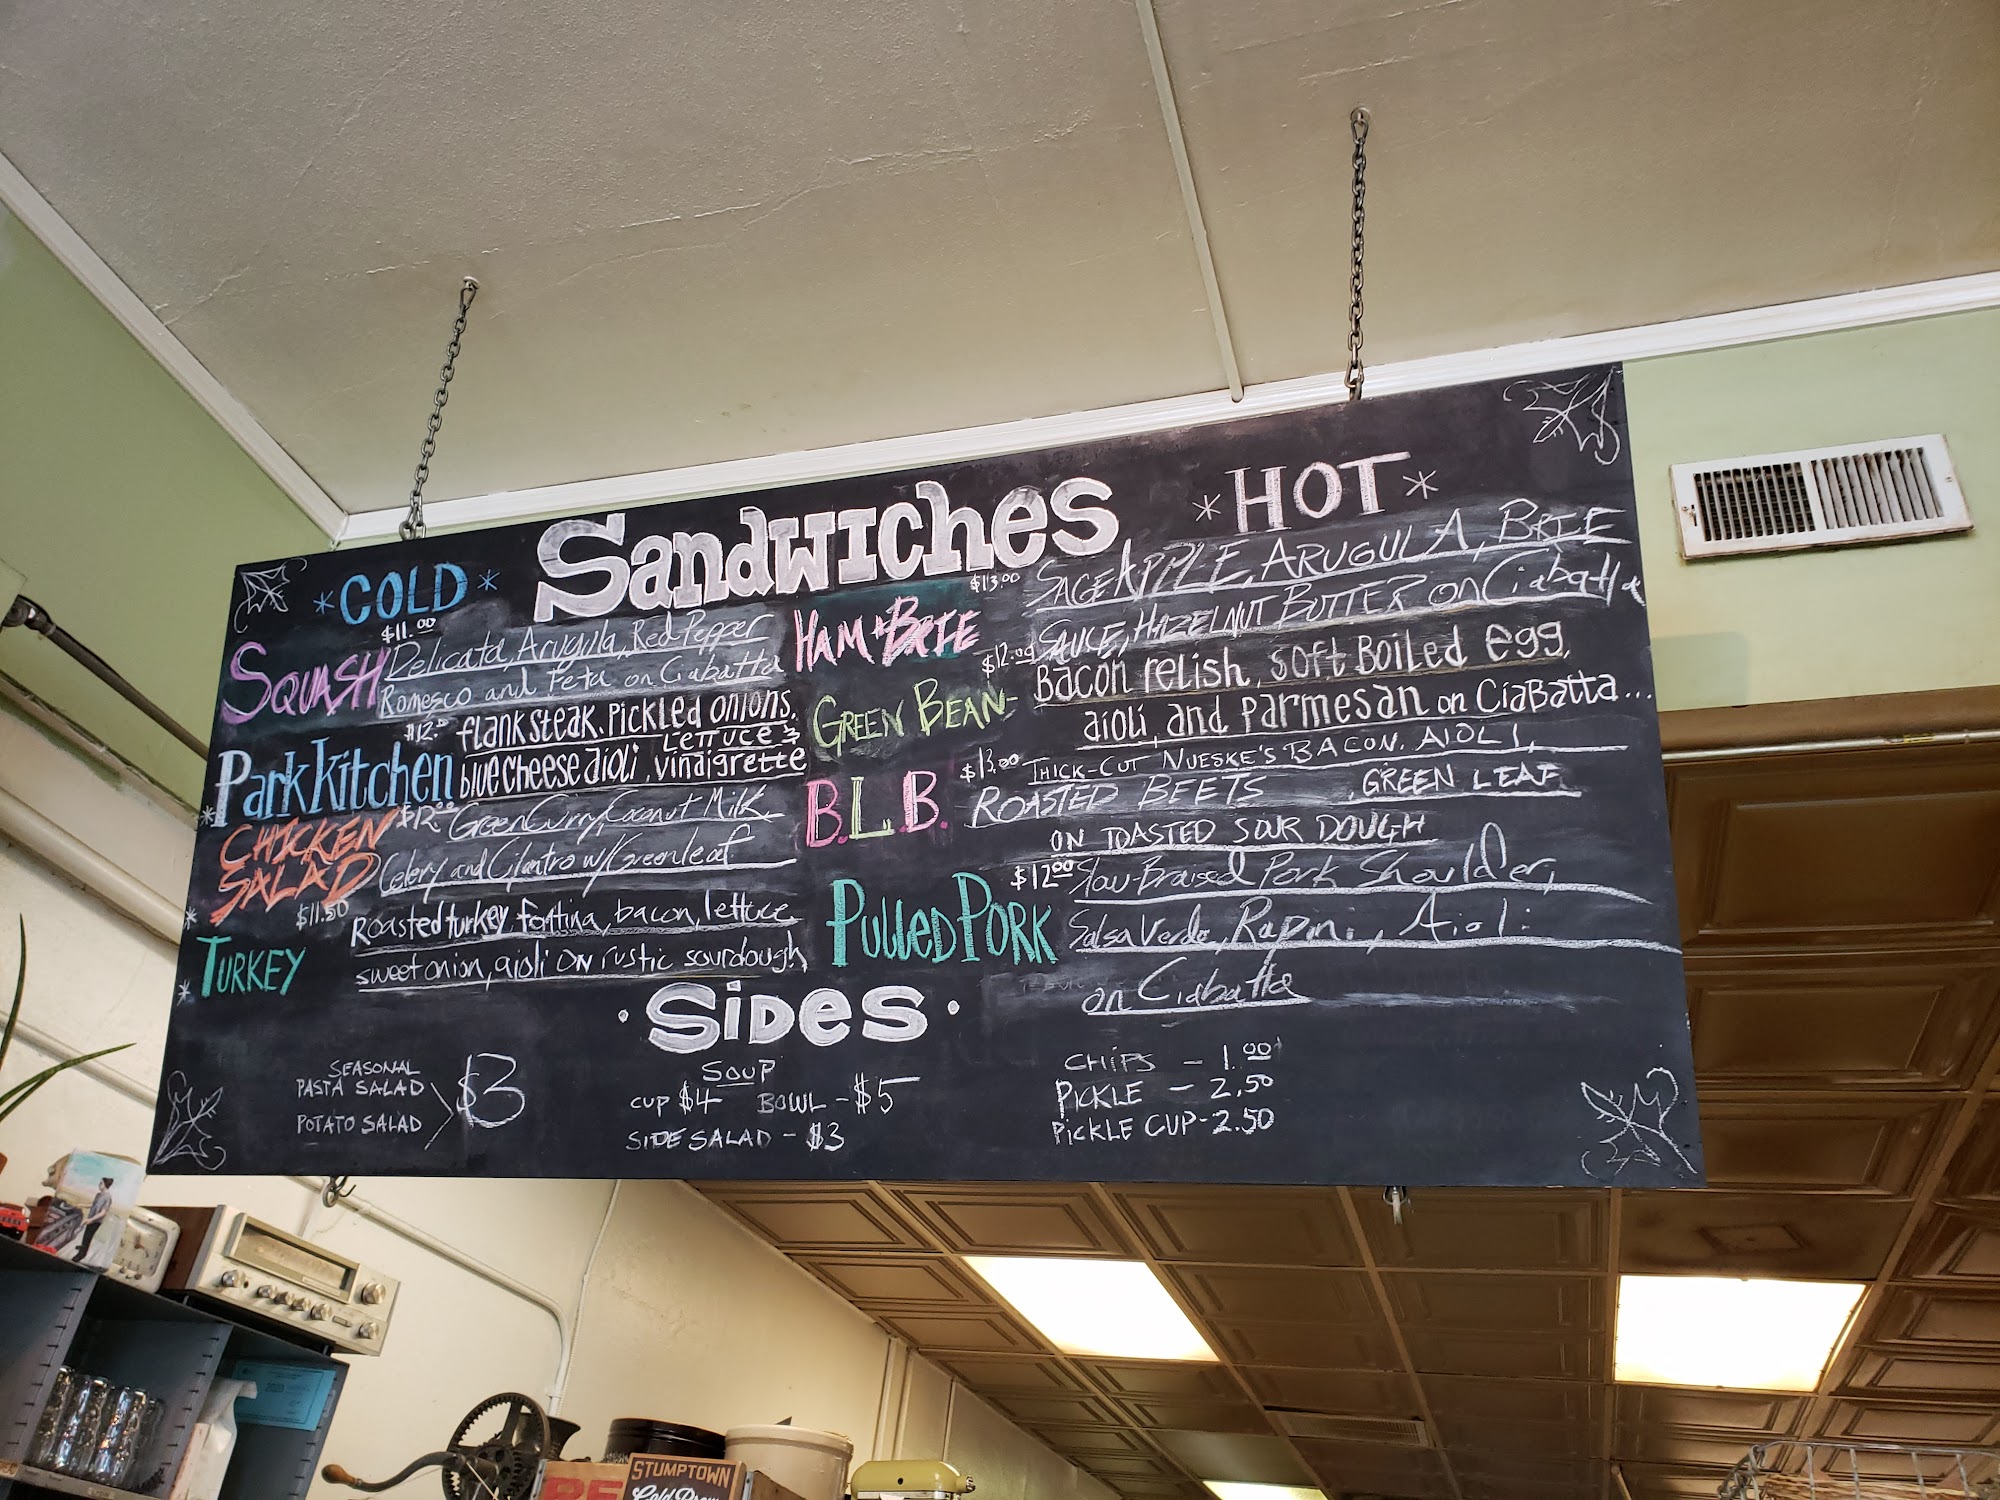 Sandwiches
* COLD *
$11.00
SQUASH
Delicata, Arugula, Red Pepper
Romesco and Feta on Ciabatta
$12.00
Park Kitchen
flank steak, Pickled onions,
Lettuce &
blue cheese aioli, vinaigrette
CHICKEN
SALAD
$12.00
Green Curry, Coconut Milk
Celery and Cilantro w/ Greenleaf
$11.50
TURKEY
Roasted turkey, fontina, bacon, lettuce
sweet onion, aioli ON rustic sourdough
* HOT *
$13.00
HAM & BRIE
SAGE APPLE, ARUGULA, BRIE
SAUCE, HAZELNUT BUTTER on Ciabatta
$12.00
GREEN BEAN-
Bacon relish, soft Boiled egg,
aioli, and parmesan on CiaBatta...
$13.00
B.L.B.
THICK-CUT NUESKE'S BACON, AIOLI,
ROASTED BEETS, GREEN LEAF
ON TOASTED SOUR DOUGH
$12.00
PULLED PORK
Slow-Braised Pork Shoulder,
Salsa Verde, Rapini, Aioli
on Ciabatta
· SiDes ·
SEASONAL
PASTA SALAD
POTATO SALAD
$3
SOUP
CUP $4 BOWL - $5
SIDE SALAD - $3
CHIPS - 1.00
PICKLE - 2.50
PICKLE CUP - 2.50
STUMPTOWN
Cold Brew